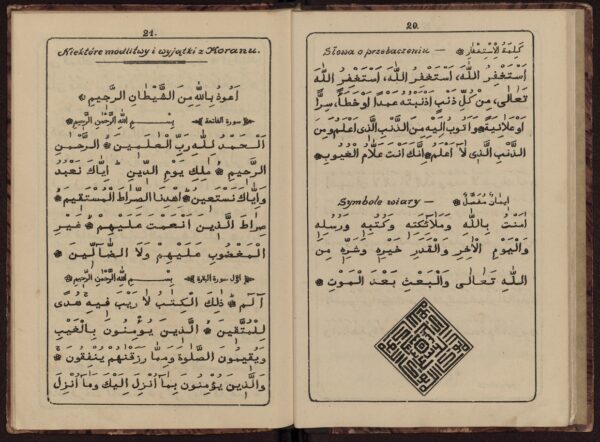 20.
Słowa o przebaczeniu — كَلِمَةُ الْاِسْتِغْفَارِ ۞
اَسْتَغْفِرُ اللّٰهَ، اَسْتَغْفِرُ اللّٰهَ، اَسْتَغْفِرُ اللّٰهَ
تَعَالٰى، مِنْ كُلِّ ذَنْبٍ اَذْنَبْتُهُ عَمَدًا اَوْ خَطَأً، سِرًّا
اَوْ عَلَانِيَةً ۞ وَاَتُوبُ اِلَيْهِ مِنَ الذَّنْبِ الَّذِى اَعْلَمُ وَمِنَ
الذَّنْبِ الَّذِى لَآ اَعْلَمُ ۞ اِنَّكَ اَنْتَ عَلَّامُ الْغُيُوبِ ۞
Symbole wiary — اِيمَانُ مُفَصَّلْ ۞
اٰمَنْتُ بِاللّٰهِ وَمَلَآئِكَتِهِ وَكُتُبِهِ وَرُسُلِهِ
وَالْيَوْمِ الْاٰخِرِ وَالْقَدَرِ خَيْرِهِ وَشَرِّهِ مِنَ
اللّٰهِ تَعَالٰى وَالْبَعْثِ بَعْدَ الْمَوْتِ ۞
21.
Niektóre modlitwy i wyjątki z Koranu.
اَعُوذُ بِاللّٰهِ مِنَ الشَّيْطَانِ الرَّجِيمِ ۞
سورة الفاتحة بِسْــمِ اللّٰهِ الرَّحْمٰنِ الرَّحِيمِ ۞
اَلْحَمْدُ لِلّٰهِ رَبِّ الْعٰلَمِينَ ۞ اَلرَّحْمٰنِ
الرَّحِيمِ ۞ مٰلِكِ يَوْمِ الدِّينِ ۞ اِيَّاكَ نَعْبُدُ
وَاِيَّاكَ نَسْتَعِينُ ۞ اِهْدِنَا الصِّرَاطَ الْمُسْتَقِيمَ ۞
صِرَاطَ الَّذِينَ اَنْعَمْتَ عَلَيْهِمْ ۞ غَيْرِ
الْمَغْضُوبِ عَلَيْهِمْ وَلَا الضَّآلِّينَ ۞
اوّل سورة البقرة بِسْــمِ اللّٰهِ الرَّحْمٰنِ الرَّحِيمِ ۞
آلٓمٓ ۞ ذٰلِكَ الْكِتٰبُ لَا رَيْبَ فِيهِ هُدًى
لِلْمُتَّقِينَ ۞ الَّذِينَ يُؤْمِنُونَ بِالْغَيْبِ
وَيُقِيمُونَ الصَّلٰوةَ وَمِمَّا رَزَقْنٰهُمْ يُنْفِقُونَ ۞
وَالَّذِينَ يُؤْمِنُونَ بِمَآ اُنْزِلَ اِلَيْكَ وَمَآ اُنْزِلَ